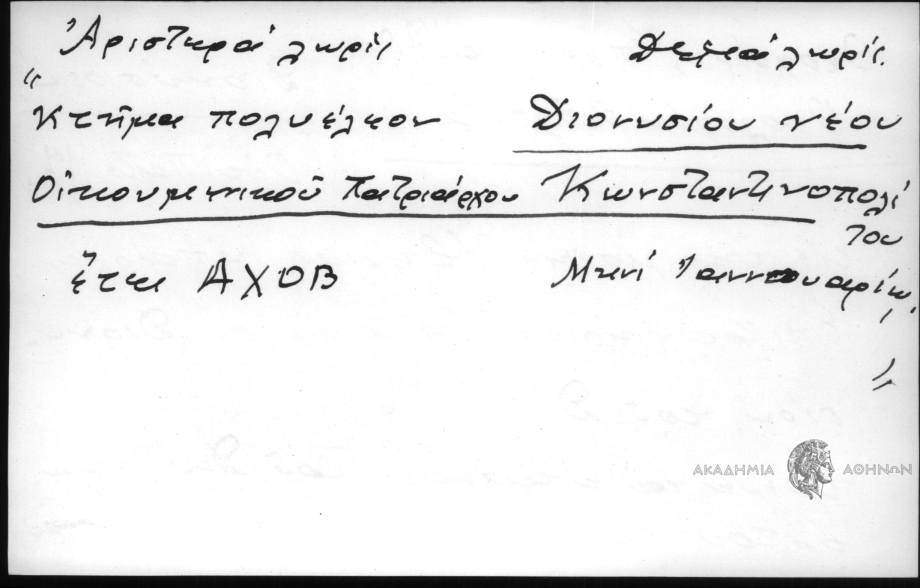 Ἀριστερά χωρίς Δεξιά χωρίς.
"Κτῆμα πολυέλεον Διονυσίου νέου
Οἰκουμενικοῦ Πατριάρχου Κωνσταντινοπολί
του
ἔτει ΑΧΟΒ Μηνί Ἰαννουαρίῳ,
"
ΑΚΑΔΗΜΙΑ ΑΘΗΝΩΝ